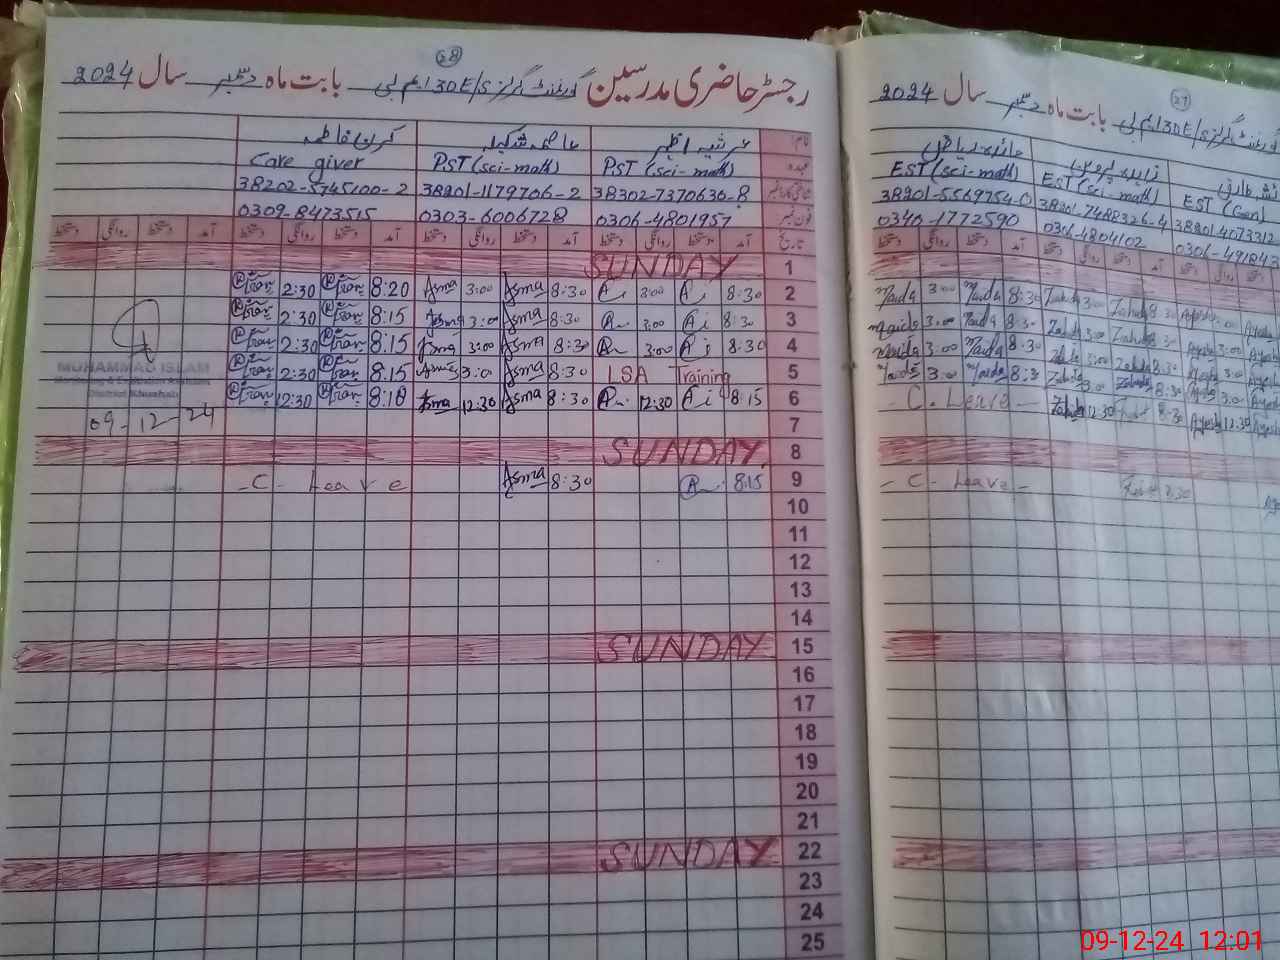 28
رجسٹر حاضری مدرسین گورنمنٹ گرلز E/S 130 ایم بی بابت ماہ دسمبر سال 2024
نام:
عہدہ PST (sci-math) PST (sci-math) Care giver
38302-7370630-8 38201-1179706-2 38202-5745100-2
فون نمبر 0306-4801957 0303-6006728 0309-8473515
تاریخ آمد دستخط روانگی دستخط آمد دستخط روانگی دستخط آمد دستخط روانگی دستخط
1 SUNDAY
2 8:30 3:00 8:30 Asma 3:00 Asma 8:20 2:30
3 8:30 3:00 8:30 Asma 3:00 Asma 8:15 2:30
4 8:30 3:00 8:30 Asma 3:00 Asma 8:15 2:30
5 LSA Training 8:30 Asma 3:0 8:15 2:30
6 8:15 12:30 8:30 Asma 12:30 Asma 8:10 12:30
7
8 SUNDAY
9 8:15 8:30 Asma -C- Leave
10
11
12
13
14
15 SUNDAY
16
17
18
19
20
21
22 SUNDAY
23
24
25
MUHAMMAD ISLAM
09-12-24
27
گورنمنٹ گرلز E/S 130 ایم بی بابت ماہ دسمبر سال 2024
EST (sci-math) EST (sci-math) EST (Gen)
38201-5569754-0 38201-7488326-4 38201-4073312
0340-1772590 0306-4804102 0306-491843
Maida 3:00 Maida 8:30 Zahida 3:00 Zahida 8:30
Maida 3:00 Maida 8:30 Zahida 3:00 Zahida 8:30
Maida 3:00 Maida 8:30 Zahida 3:00 Zahida 8:30
Maida 3:0 Maida 8:30 Zahida 3:00 Zahida 8:30
- C. Leave - Zahida 12:30 8:30 Ayesha 12:30
- C - Leave - 8:30
09-12-24 12:01